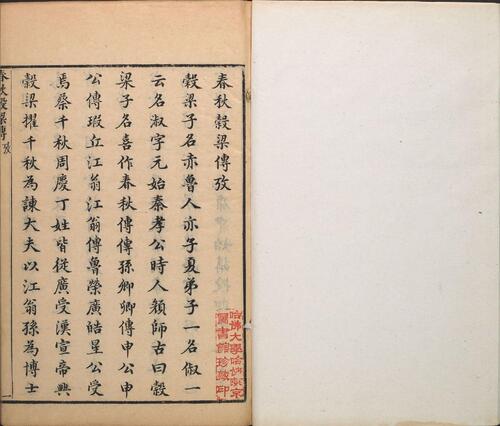 春秋穀梁傳攷
穀梁子名赤魯人亦子夏弟子一名俶一
云名淑字元始秦孝公時人顏師古曰穀
梁子名喜作春秋傳傳孫卿卿傳申公申
公傳瑕丘江翁江翁傳魯榮廣皓星公受
焉蔡千秋周慶丁姓皆從廣受漢宣帝興
穀梁擢千秋為諫大夫以江翁孫為博士
春秋穀梁傳攷
一
哈佛大學哈佛燕京
圖書館珍藏印